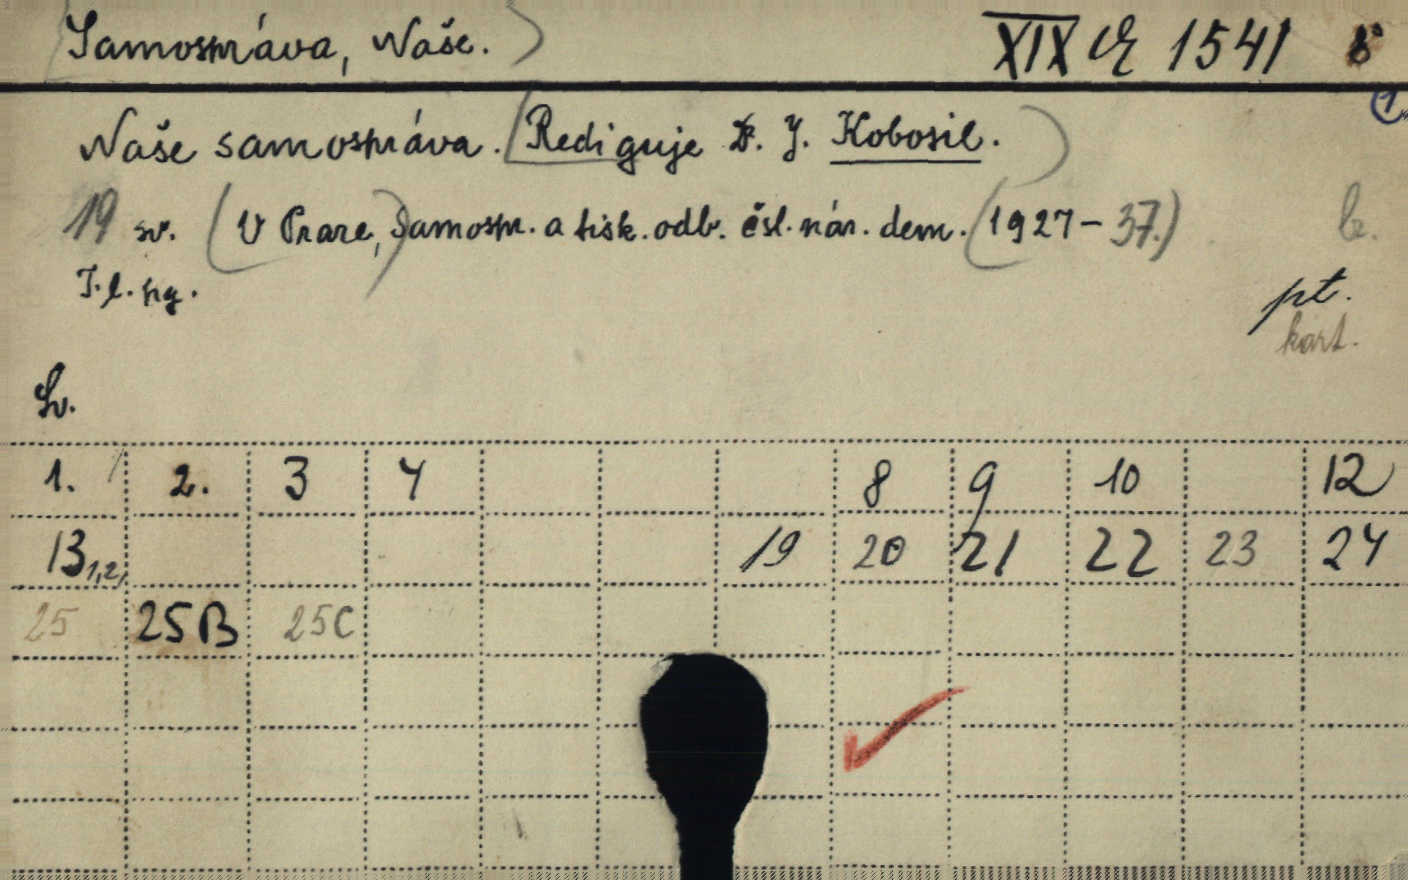 Samospráva, Naše.
XIX E 1541 8°
1
Naše samospráva. (Rediguje Dr. J. Kobosil.)
19 sv. (V Praze, Samospr. a tisk. odb. čsl. nár. dem. (1927–37.)
b.
pt.
kart.
Sv.
1. 2. 3 4 8 9 10 12
13,1,2, 19 20 21 22 23 24
25 25B 25C